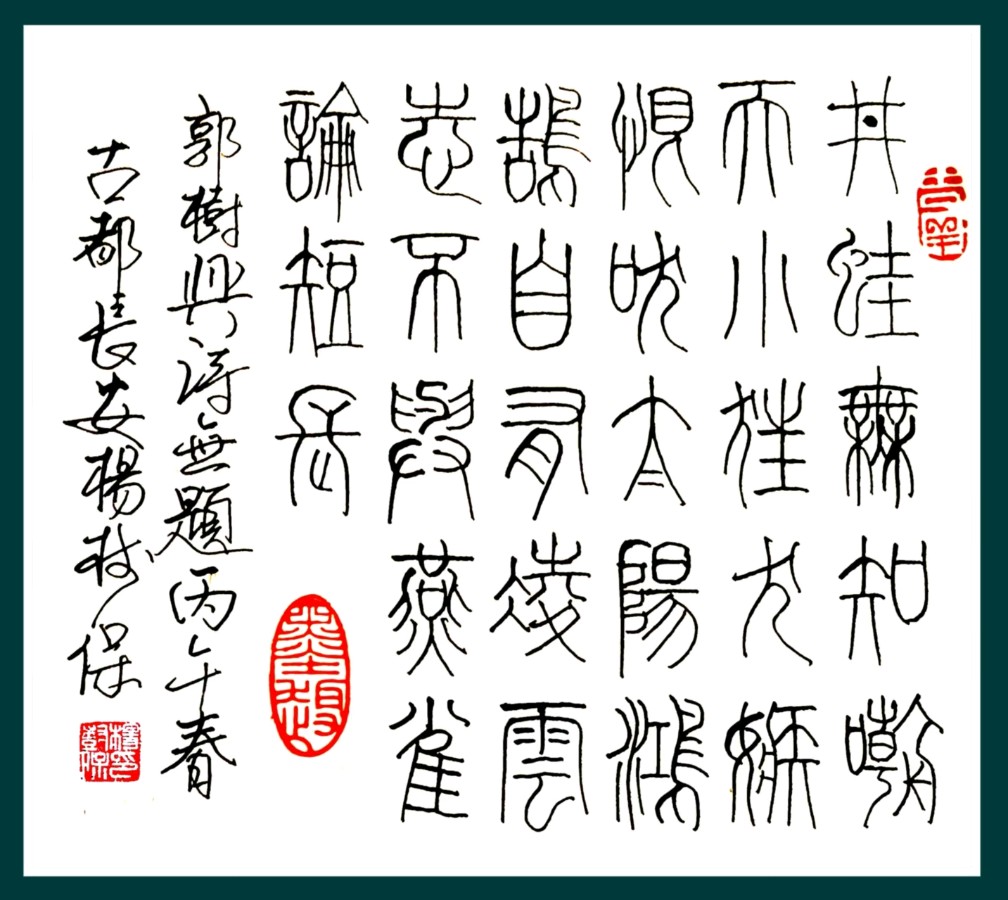 井蛙無知嘲
天小狂犬嫉
恨吠太陽鴻
鵠自有凌雲
志不與燕雀
論短長
郭樹興詩無題丙午春
古都長安楊树保